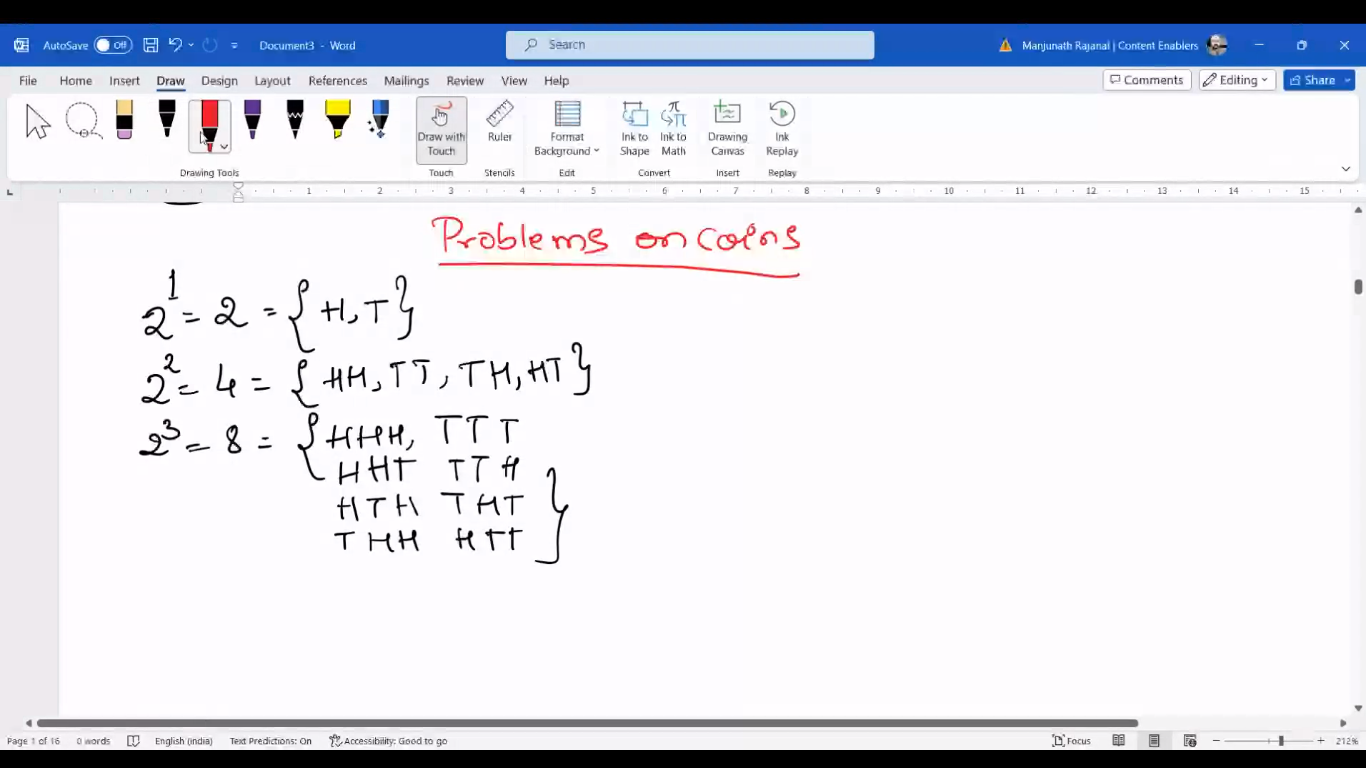 AutoSave Off Document3 - Word Search Manjunath Rajanal | Content Enablers
File Home Insert Draw Design Layout References Mailings Review View Help Comments Editing Share
Draw with Touch Ruler Format Background Ink to Shape Ink to Math Drawing Canvas Ink Replay
Drawing Tools Touch Stencils Edit Convert Insert Replay
1 2 3 4 5 6 7 8 9 10 11 12 13 14 15
Problems on coins
2¹ = 2 = {H, T}
2² = 4 = {HH, TT, TH, HT}
2³ = 8 = {HHH, TTT
HHT TTH
HTH THT
THH HTT}
Page 1 of 16 0 words English (India) Text Predictions: On Accessibility: Good to go Focus 212%